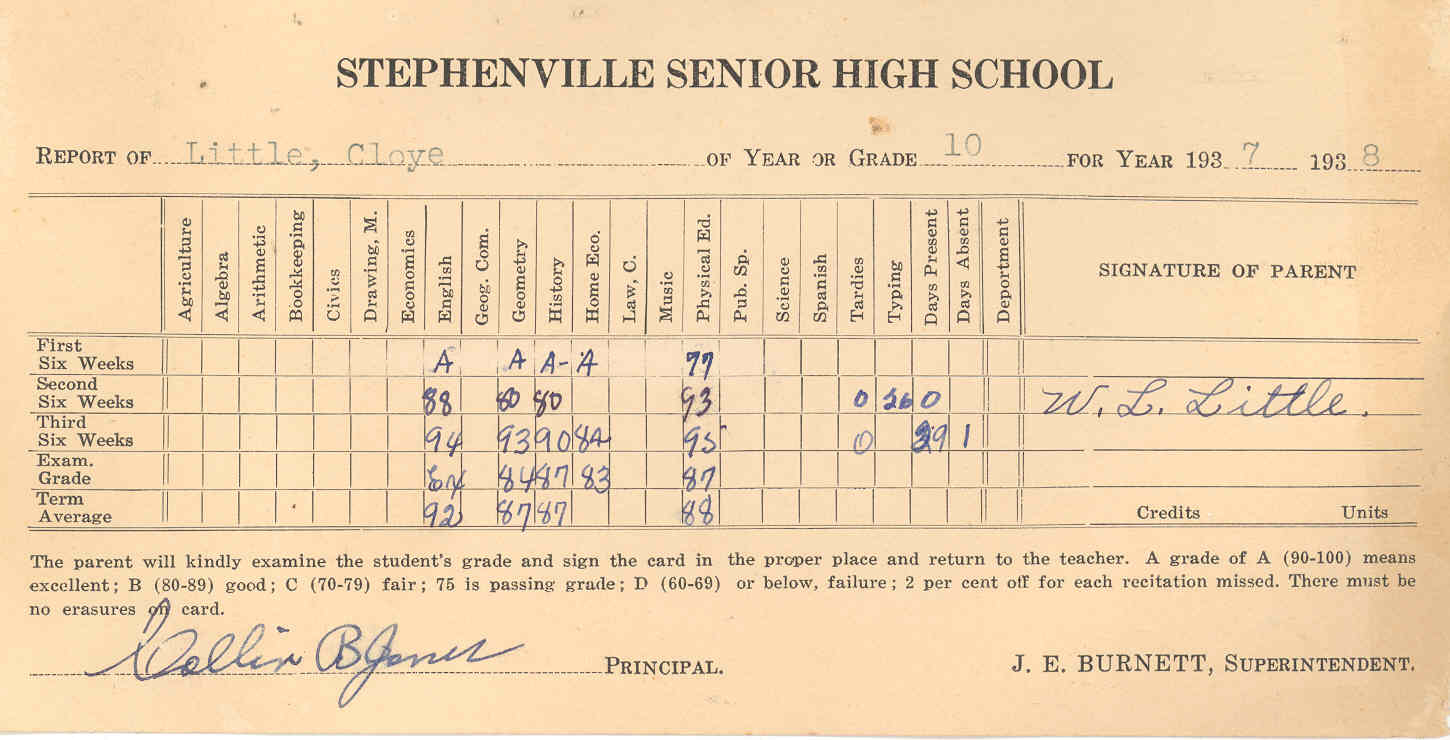 STEPHENVILLE SENIOR HIGH SCHOOL
REPORT OF Little, Cloye OF YEAR OR GRADE 10 FOR YEAR 1937 1938
Agriculture Algebra Arithmetic Bookkeeping Civics Drawing, M. Economics English Geog. Com. Geometry History Home Eco. Law, C. Music Physical Ed. Pub. Sp. Science Spanish Tardies Typing Days Present Days Absent Deportment SIGNATURE OF PARENT
First
Six Weeks A A A- A 77
Second
Six Weeks 88 80 80 93 0 0 W. L. Little.
Third
Six Weeks 94 93 90 84 95 0 29 1
Exam.
Grade 84 87 83 87
Term
Average 92 87 87 88 Credits Units
The parent will kindly examine the student's grade and sign the card in the proper place and return to the teacher. A grade of A (90-100) means
excellent; B (80-89) good; C (70-79) fair; 75 is passing grade; D (60-69) or below, failure; 2 per cent off for each recitation missed. There must be
no erasures on card.
Collin B Jones PRINCIPAL. J. E. BURNETT, SUPERINTENDENT.